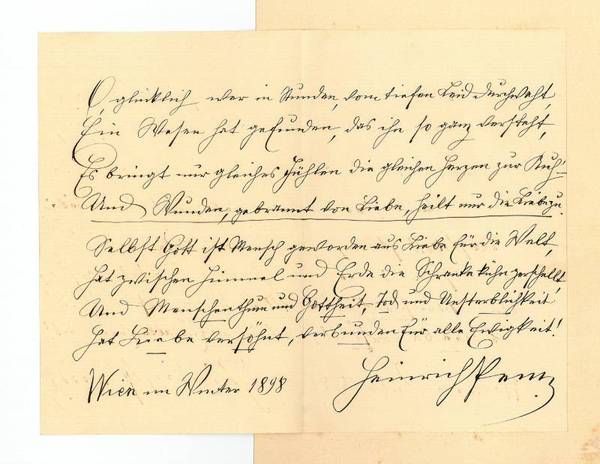 O, glücklich wer in Stunden, vom tiefen Leid durchweht,
Ein Wesen hat gefunden, das ihn so ganz versteht,
Es bringt nur gleiches Fühlen die gleichen Herzen zur Ruh'
Und Wunden, gebrannt von Liebe, heilt nur die Liebe zu.
Selbst Gott ist Mensch geworden aus Liebe für die Welt,
hat zwischen Himmel und Erde die Schranke kühn zerschellt
Und Menschenthum und Gottheit, Tod und Unsterblichkeit
hat Liebe versöhnt, verbunden für alle Ewigkeit!
Wien im Winter 1898
Heinrich Penn